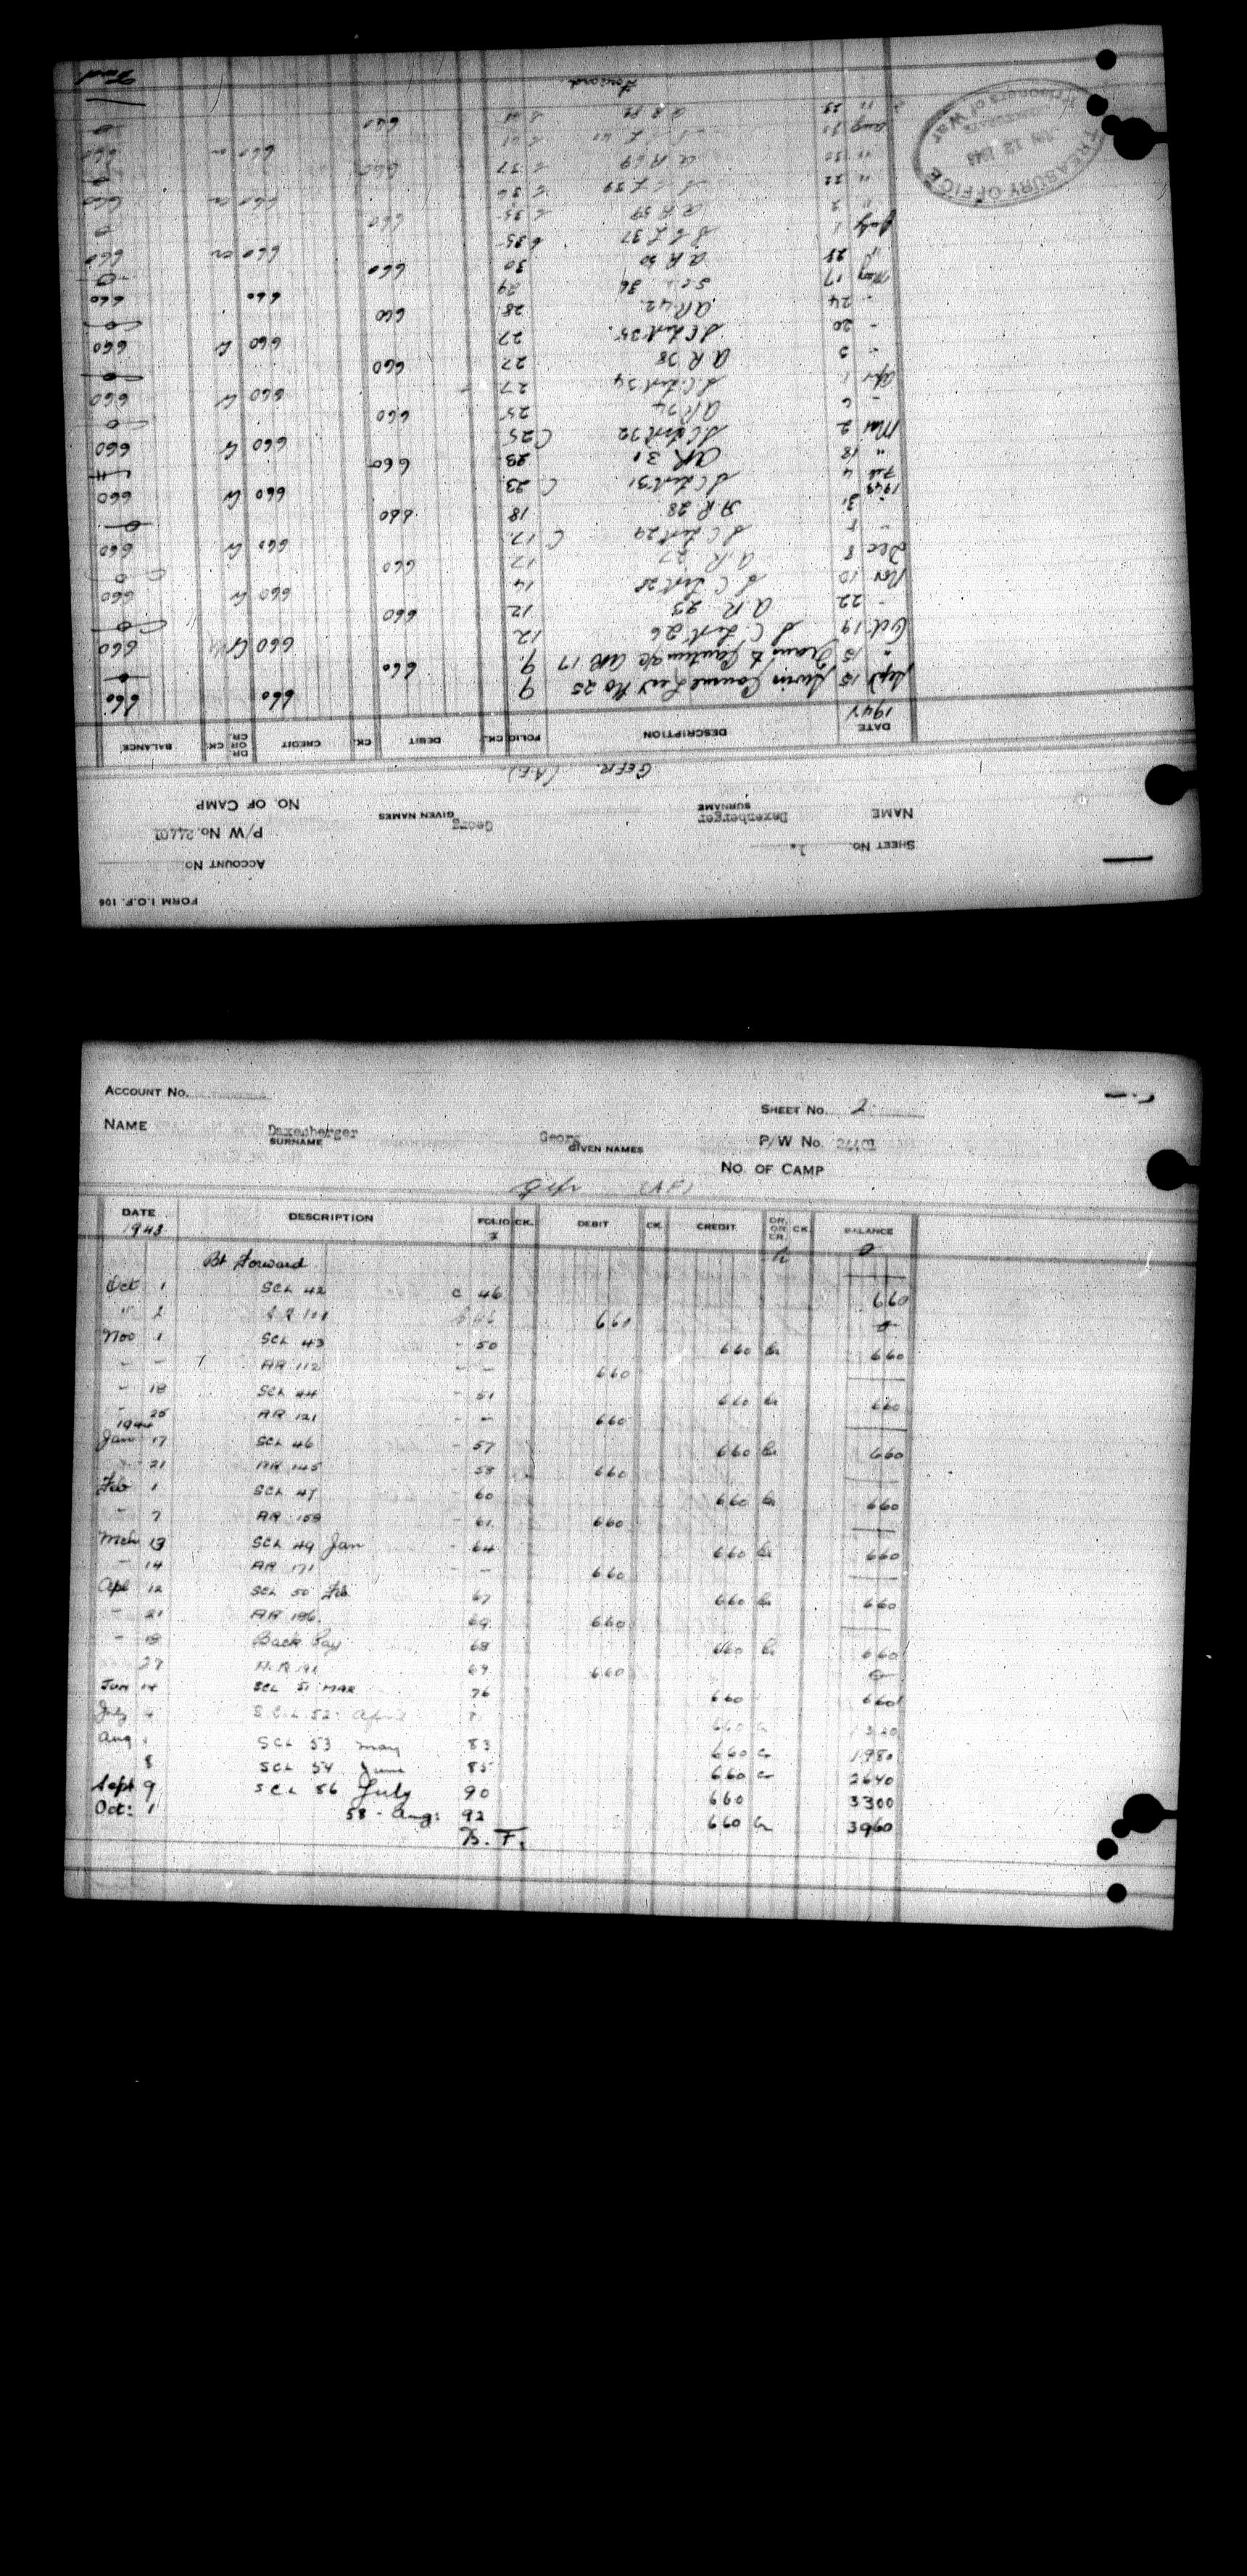 FORM I.O.F. 106
ACCOUNT No.
SHEET No. 1.
P/W No. 24401
NAME Daxenberger Georg
SURNAME GIVEN NAMES
NO. OF CAMP
GEFR. (A.F.)
DATE DESCRIPTION FOLIO CK. DEBIT CK. CREDIT DR. OR CR. CK. BALANCE
Sept 15 No 25 9 660 660
" 15 AR 17 9 660 0
Oct 19 S C List 26 12 660 Cr 660
- 22 A R 23 12 660 0
Nov 10 S C List 28 14 660 Cr 660
Dec 8 A R 27 17 660 0
S C List 29 C 17 660 Cr 660
31 A R 28 18 660 0
1943
Feb 4 S C List 31 C 23 660 Cr 660
" 18 AR 31 23 660
Mar 2 S C List 32 C 25 660 Cr 660
- 6 AR 34 25 660 0
Apr 1 S C List 34 27 660 Cr 660
- 5 A R 38 27 660 0
- 20 S C List 35 27 660 Cr 660
- 24 AR 42 28 660 0
May 17 SCL 36 29 660 660
" 28 A R 50 30 660 0
July 1 S C L 37 35 660 cr 660
" 2 A R 59 35 660 0
" 22 S C L 39 36 660 cr 660
" 30 A R 69 37 660 0
Aug S C L 40 41 660 cr 660
" 28 A R 41 660 0
Forward
TREASURY OFFICE
Prisoners of War
ACCOUNT No.
SHEET No. 2
NAME Daxenberger Georg P/W No. 24401
SURNAME GIVEN NAMES
NO. OF CAMP
Gefr (AF)
DATE DESCRIPTION FOLIO CK. DEBIT CK. CREDIT DR. OR CR. CK. BALANCE
1943
Bt Forward 0
Oct 1 SCL 42 C 46 660
" 2 A R 101 660 0
Nov 1 SCL 43 - 50 660 Cr 660
- - AR 112 - - 660
- 18 SCL 44 - 51 660 Cr 660
- 25 AR 121 - - 660
1944
Jan 17 SCL 46 - 57 660 Cr 660
21 AR 145 - 58 660
Feb 1 SCL 47 60 660 Cr 660
- 7 AR 158 - 61 660
Mch 13 SCL 49 Jan - 64 660 Cr 660
- 14 AR 171 - - 660
Apl 12 SCL 50 Feb 67 660 Cr 660
- 21 AR 186 69 660
- 18 Back Pay 68 660 Cr 660
27 A.R 191 69 660 0
Jun 14 SCL 51 MAR 76 660 660
July 4 S.C.L 52 April 660 Cr 1320
Aug 1 SCL 53 may 83 660 Cr 1980
8 SCL 54 June 85 660 Cr 2640
Sept 9 SCL 56 July 90 660 3300
Oct: 1 58 - Aug: 92 660 Cr 3960
B. F.